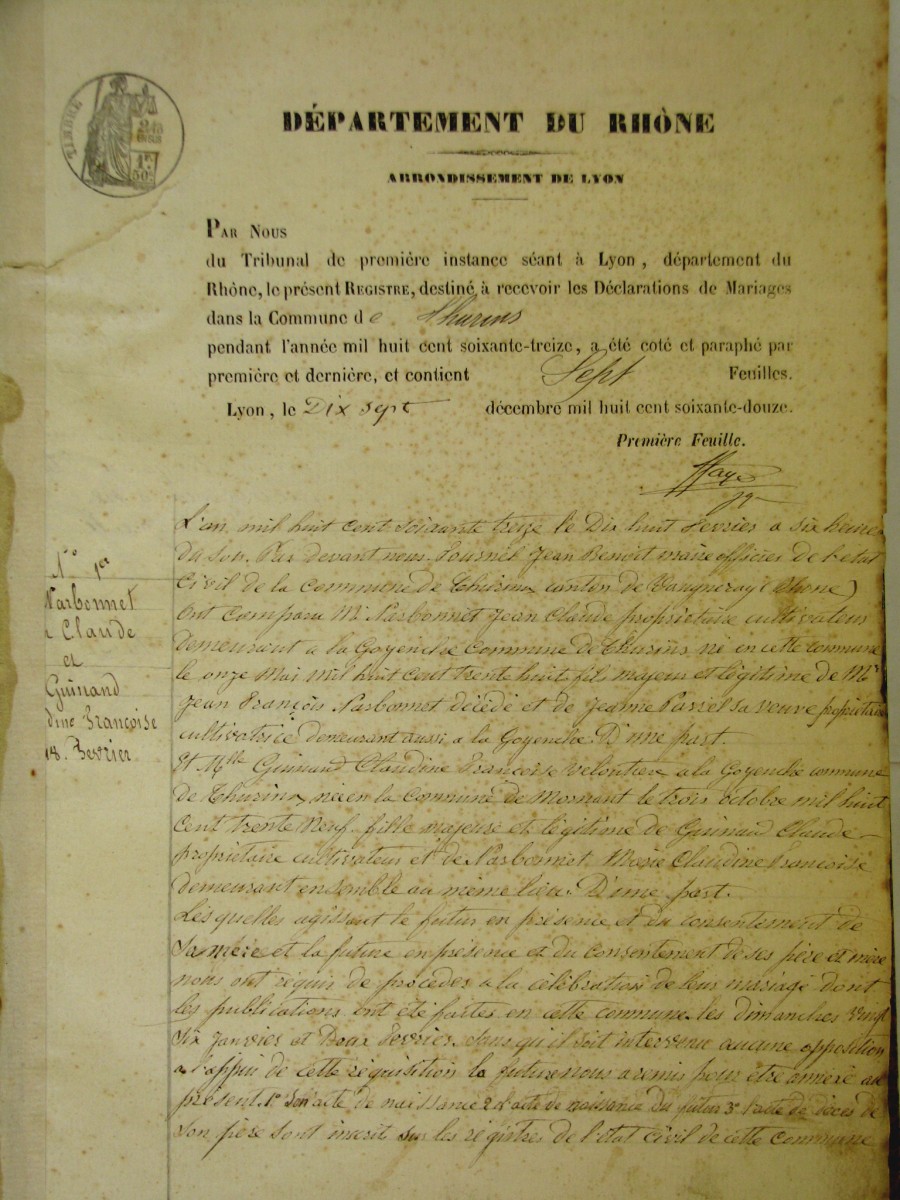 TIMBRE
2/10
EN SUS
1F
50C
DÉPARTEMENT DU RHÔNE
ARRONDISSEMENT DE LYON
PAR NOUS
du Tribunal de première instance séant à Lyon, département du
Rhône, le présent REGISTRE, destiné à recevoir les Déclarations de Mariages
dans la Commune de Thurins
pendant l'année mil huit cent soixante-treize, a été coté et paraphé par
première et dernière, et contient Sept Feuilles.
Lyon, le Dix sept décembre mil huit cent soixante-douze.
Première Feuille.
N° 1er
Narbonnet
Claude
et
Guinand
dine Françoise
18. Fevrier
L'an mil huit cent soixante treize le Dix huit Fevrier a six heures
du Soir. Par devant nous Fournel Jean Benoit maire officier de l'etat
Civil de la commune de Thurins canton de Vaugneray (Rhone)
Ont comparu Mr Narbonnet Jean Claude propriétaire cultivateur
demeurant a la Goyenche Commune de Thurins né en cette commune
le onze Mai mil huit Cent trente huit fils majeur et légitime de Mr
Jean François Narbonnet décédé et de Jeanne sa veuve propriétaire
cultivatrice demeurant aussi a la Goyenche D'une part.
Et Mlle Guinand Claudine Françoise a la Goyenche commune
de Thurins née en la Commune de Mornant le trois octobre mil huit
Cent trente Neuf fille majeure et légitime de Guinand Claude
propriétaire cultivateur et de Narbonnet Marie Claudine Françoise
demeurant ensemble au même lieu. D'une part.
Lesquelles agissant le futur en présence et du consentement de
sa mere et la future en présence et du consentement de ses père et mère
nous ont réquir de procédes a la célébration de leur mariage dont
les publications ont été faites en cette commune les dimanches vingt
six Janvier et Deux Fevrier. sans qu'il soit intervenu aucune opposition
a l'appui de cette réquisition la future nous a remis pour être annexé au
présent. 1° Son acte de naissance 2° l'acte de naissance du futur 3° l'acte de déces de
Son père sont inscrit sur les régistres de l'état civil de cette commune